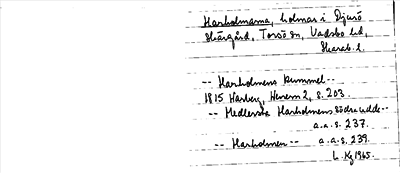 Harholmarna, holmar i Djurö
skärgård, Torsö sn, Vadsbo hd,
Skarab. l.
-- Harholmens kummel --
1815 Harberg, Henem 2, s. 203.
-- Medlersta Harholmens södra udde --
a.a. s. 237.
-- Harholmen -- a.a. s. 239.
L. Kg 1965.